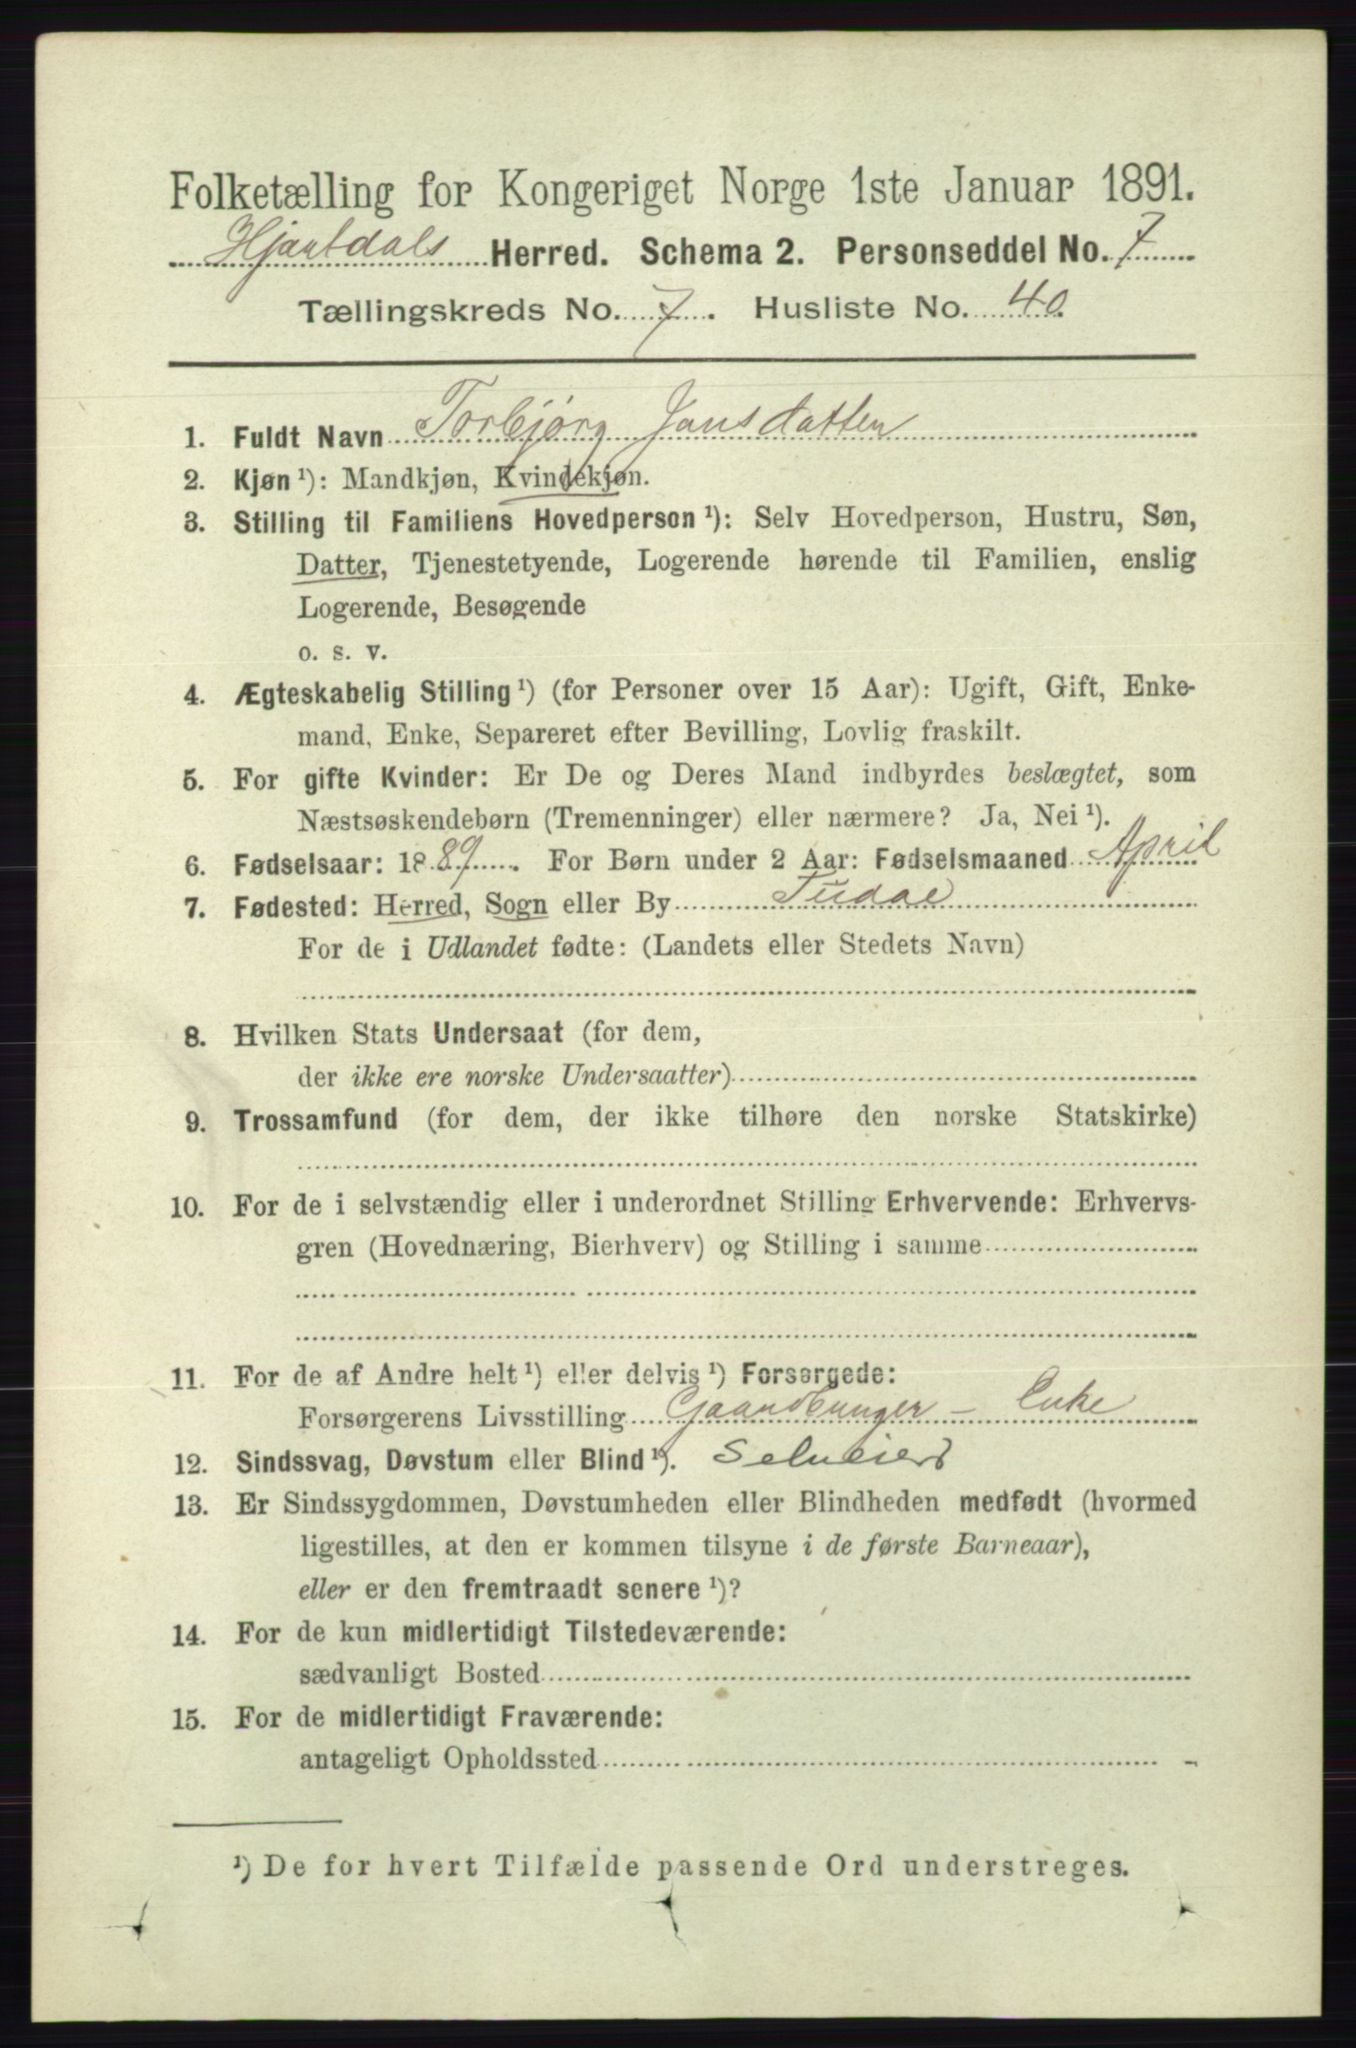 Folketælling for Kongeriget Norge 1ste Januar 1891.
Hjartdals Herred. Schema 2. Personseddel No. 7
Tællingskreds No. 7. Husliste No. 40.
1. Fuldt Navn Torbjørg Jansdatter
2. Kjøn ¹): Mandkjøn, Kvindekjøn.
3. Stilling til Familiens Hovedperson ¹): Selv Hovedperson, Hustru, Søn,
Datter, Tjenestetyende, Logerende hørende til Familien, enslig
Logerende, Besøgende
o. s. v.
4. Ægteskabelig Stilling ¹) (for Personer over 15 Aar): Ugift, Gift, Enke-
mand, Enke, Separeret efter Bevilling, Lovlig fraskilt.
5. For gifte Kvinder: Er De og Deres Mand indbyrdes beslægtet, som
Næstsøskendebørn (Tremenninger) eller nærmere? Ja, Nei ¹).
6. Fødselsaar: 1889. For Børn under 2 Aar: Fødselsmaaned April
7. Fødested: Herred, Sogn eller By Tudal
For de i Udlandet fødte: (Landets eller Stedets Navn)
8. Hvilken Stats Undersaat (for dem,
der ikke ere norske Undersaatter)
9. Trossamfund (for dem, der ikke tilhøre den norske Statskirke)
10. For de i selvstændig eller i underordnet Stilling Erhvervende: Erhvervs-
gren (Hovednæring, Bierhverv) og Stilling i samme
11. For de af Andre helt ¹) eller delvis ¹) Forsørgede:
Forsørgerens Livsstilling Gaardbruger - Enke
12. Sindssvag, Døvstum eller Blind ¹). Selveier
13. Er Sindssygdommen, Døvstumheden eller Blindheden medfødt (hvormed
ligestilles, at den er kommen tilsyne i de første Barneaar),
eller er den fremtraadt senere ¹)?
14. For de kun midlertidigt Tilstedeværende:
sædvanligt Bosted
15. For de midlertidigt Fraværende:
antageligt Opholdssted
¹) De for hvert Tilfælde passende Ord understreges.